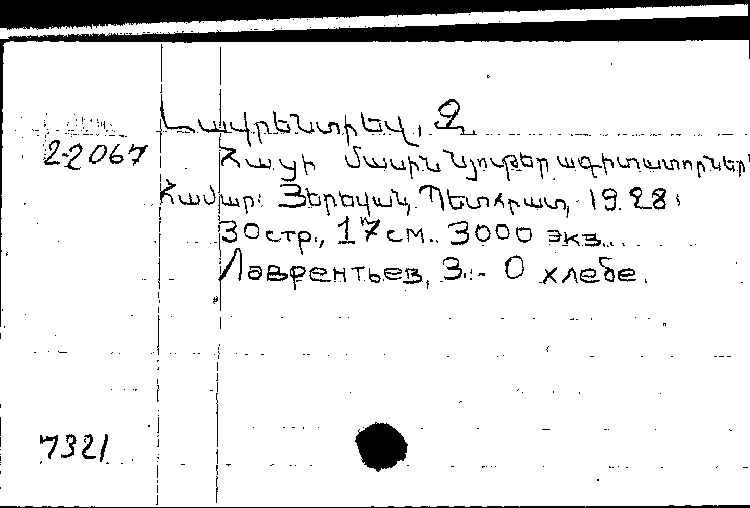 Լավրենտիեվ, Զ.
2-2067 Հացի մասին նյութեր ագիտատորների
համար: Յերեվան, Պետհրատ, 1928:
30 стр., 17 см. 3000 экз.
Лаврентьев, З. - О хлебе.
7321